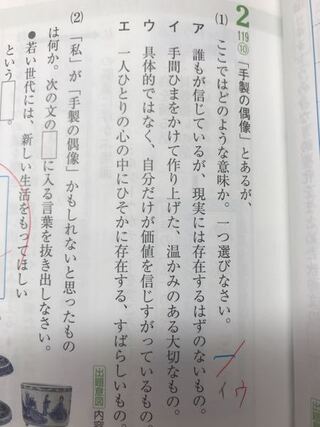 2
119
⑩
「手製の偶像」とあるが、
(1) ここではどのような意味か。一つ選びなさい。
ア 誰もが信じているが、現実には存在するはずのないもの。
イ 手間ひまをかけて作り上げた、温かみのある大切なもの。
ウ 具体的ではなく、自分だけが価値を信じすがっているもの。
エ 一人ひとりの心の中にひそかに存在する、すばらしいもの。
イ ウ
(2) 「私」が「手製の偶像」かもしれないと思ったもの
は何か。次の文の□に入る言葉を抜き出しなさい。
●若い世代には、新しい生活をもってほしい
という□。
出題意図 内容